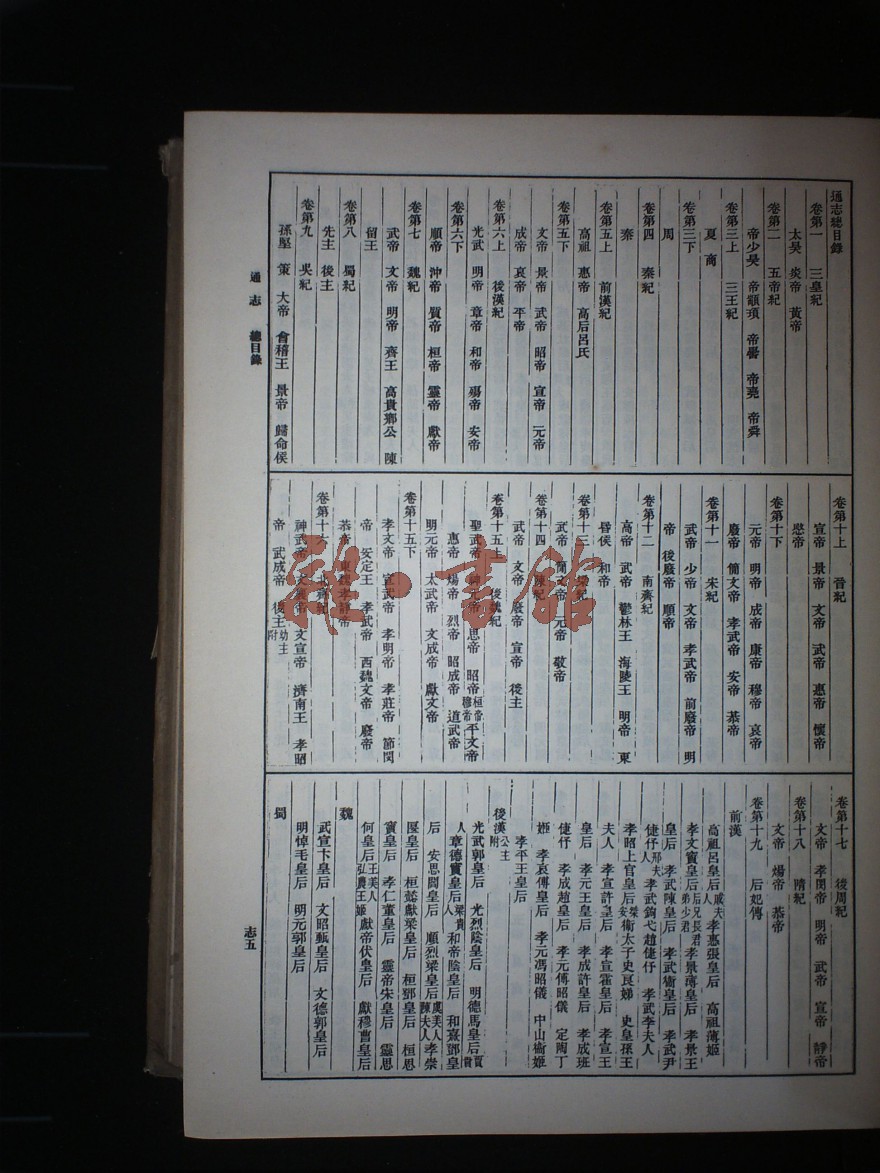 通志總目錄
卷第一 三皇紀
太昊 炎帝 黃帝
卷第二 五帝紀
帝少昊 帝顓頊 帝嚳 帝堯 帝舜
卷第三上 三王紀
夏 商
卷第三下
周
卷第四 秦紀
秦
卷第五上 前漢紀
高祖 惠帝 高后呂氏
卷第五下
文帝 景帝 武帝 昭帝 宣帝 元帝
成帝 哀帝 平帝
卷第六上 後漢紀
光武 明帝 章帝 和帝 殤帝 安帝
卷第六下
順帝 沖帝 質帝 桓帝 靈帝 獻帝
卷第七 魏紀
武帝 文帝 明帝 齊王 高貴鄉公 陳
留王
卷第八 蜀紀
先主 後主
卷第九 吳紀
孫堅 策 大帝 會稽王 景帝 歸命侯
卷第十上 晉紀
宣帝 景帝 文帝 武帝 惠帝 懷帝
愍帝
卷第十下
元帝 明帝 成帝 康帝 穆帝 哀帝
廢帝 簡文帝 孝武帝 安帝 恭帝
卷第十一 宋紀
武帝 少帝 文帝 孝武帝 前廢帝 明
帝 後廢帝 順帝
卷第十二 南齊紀
高帝 武帝 鬱林王 海陵王 明帝 東
昏侯 和帝
卷第十三 梁紀
武帝 簡文帝 元帝 敬帝
卷第十四 陳紀
武帝 文帝 廢帝 宣帝 後主
卷第十五上 後魏紀
聖武帝 神元帝 思帝 昭帝 桓帝 穆帝 平文帝
惠帝 煬帝 烈帝 昭成帝 道武帝
明元帝 太武帝 文成帝 獻文帝
卷第十五下
孝文帝 宣武帝 孝明帝 孝莊帝 節閔
帝 安定王 孝武帝 西魏文帝 廢帝
恭帝 東魏孝靜帝
卷第十六 北齊紀
神武帝 文襄帝 文宣帝 濟南王 孝昭
帝 武成帝 後主 幼主附
卷第十七 後周紀
文帝 孝閔帝 明帝 武帝 宣帝 靜帝
卷第十八 隋紀
文帝 煬帝 恭帝
卷第十九 后妃傳
前漢
高祖呂皇后 戚夫人 孝惠張皇后 高祖薄姬
孝文竇皇后 后兄長君 弟少君 孝景薄皇后 孝景王
皇后 孝武陳皇后 孝武衞皇后 孝武尹
倢伃 邢夫人 孝武鉤弋趙倢伃 孝武李夫人
孝昭上官皇后 桀 安 衞太子史良娣 史皇孫王
夫人 孝宣許皇后 孝宣霍皇后 孝宣王
皇后 孝元王皇后 孝成許皇后 孝成班
倢伃 孝成趙皇后 孝元傅昭儀 定陶丁
姬 孝哀傅皇后 孝元馮昭儀 中山衞姬
孝平王皇后
後漢 公主附
光武郭皇后 光烈陰皇后 明德馬皇后 賈貴
人 章德竇皇后 梁貴人 和帝陰皇后 和熹鄧皇
后 安思閻皇后 順烈梁皇后 虞美人 陳夫人 孝崇
匽皇后 桓懿獻梁皇后 桓鄧皇后 桓思
竇皇后 孝仁董皇后 靈帝宋皇后 靈思
何皇后 王美人 弘農王姬 獻帝伏皇后 獻穆曹皇后
魏
武宣卞皇后 文昭甄皇后 文德郭皇后
明悼毛皇后 明元郭皇后
蜀
通志 總目錄
志五
雜·書館